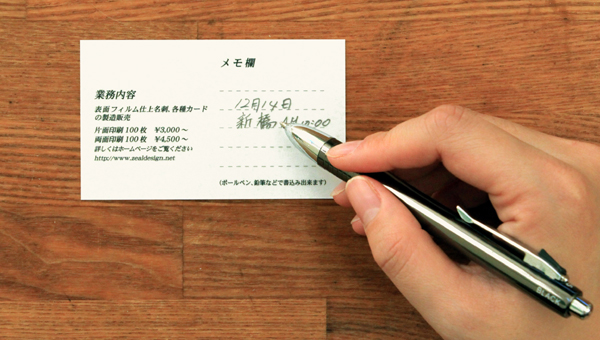 メモ欄
業務内容
表面フィルム仕上名刺、各種カード
の製造販売
片面印刷100枚 ¥3,000～
両面印刷100枚 ¥4,500～
詳しくはホームページをご覧ください
http://www.zealdesign.net
12月14日
新橋 AM
:00
（ボールペン、鉛筆などで書込み出来ます）
BLACK